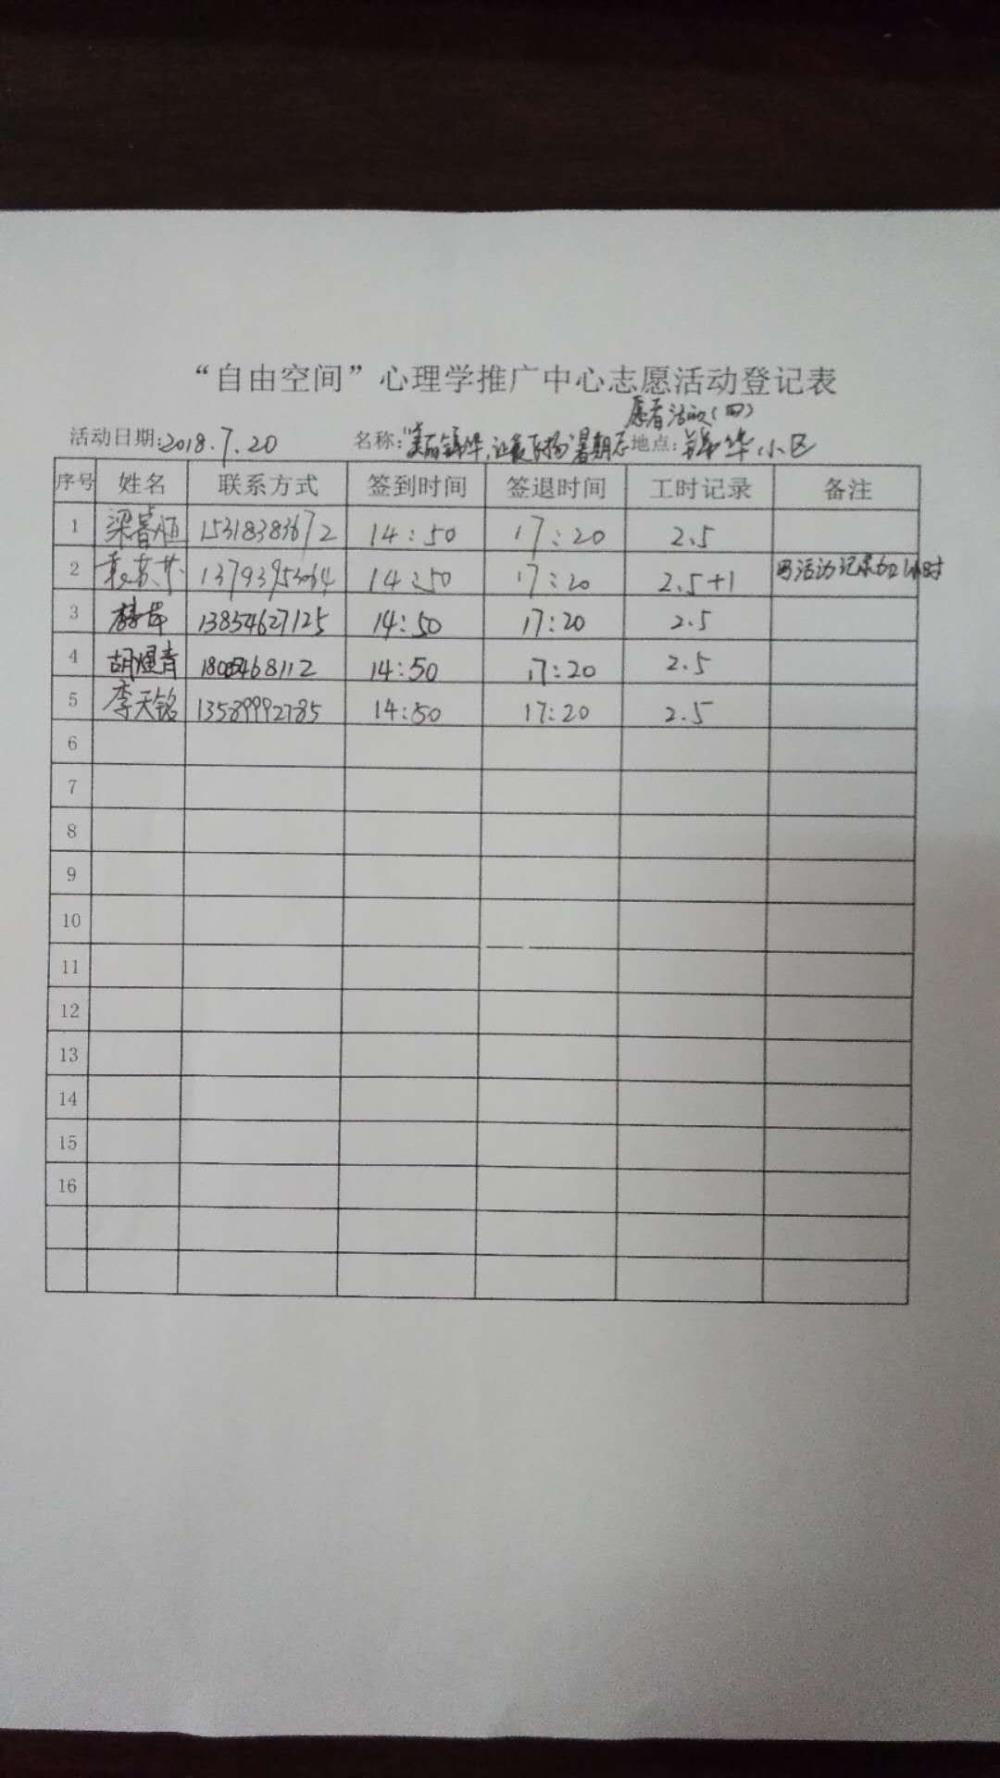 “自由空间”心理学推广中心志愿活动登记表
愿者活动(四)
活动日期:2018.7.20 名称:“美丽锦华, 暑期志 地点:锦华小区
序号 姓名 联系方式 签到时间 签退时间 工时记录 备注
1 梁 15318383672 14:50 17:20 2.5
2 13793953064 14:50 17:20 2.5+1 写活动记录加1小时
3 13854627125 14:50 17:20 2.5
4 胡煜青 14:50 17:20 2.5
5 李天铭 13589992785 14:50 17:20 2.5
6
7
8
9
10
11
12
13
14
15
16